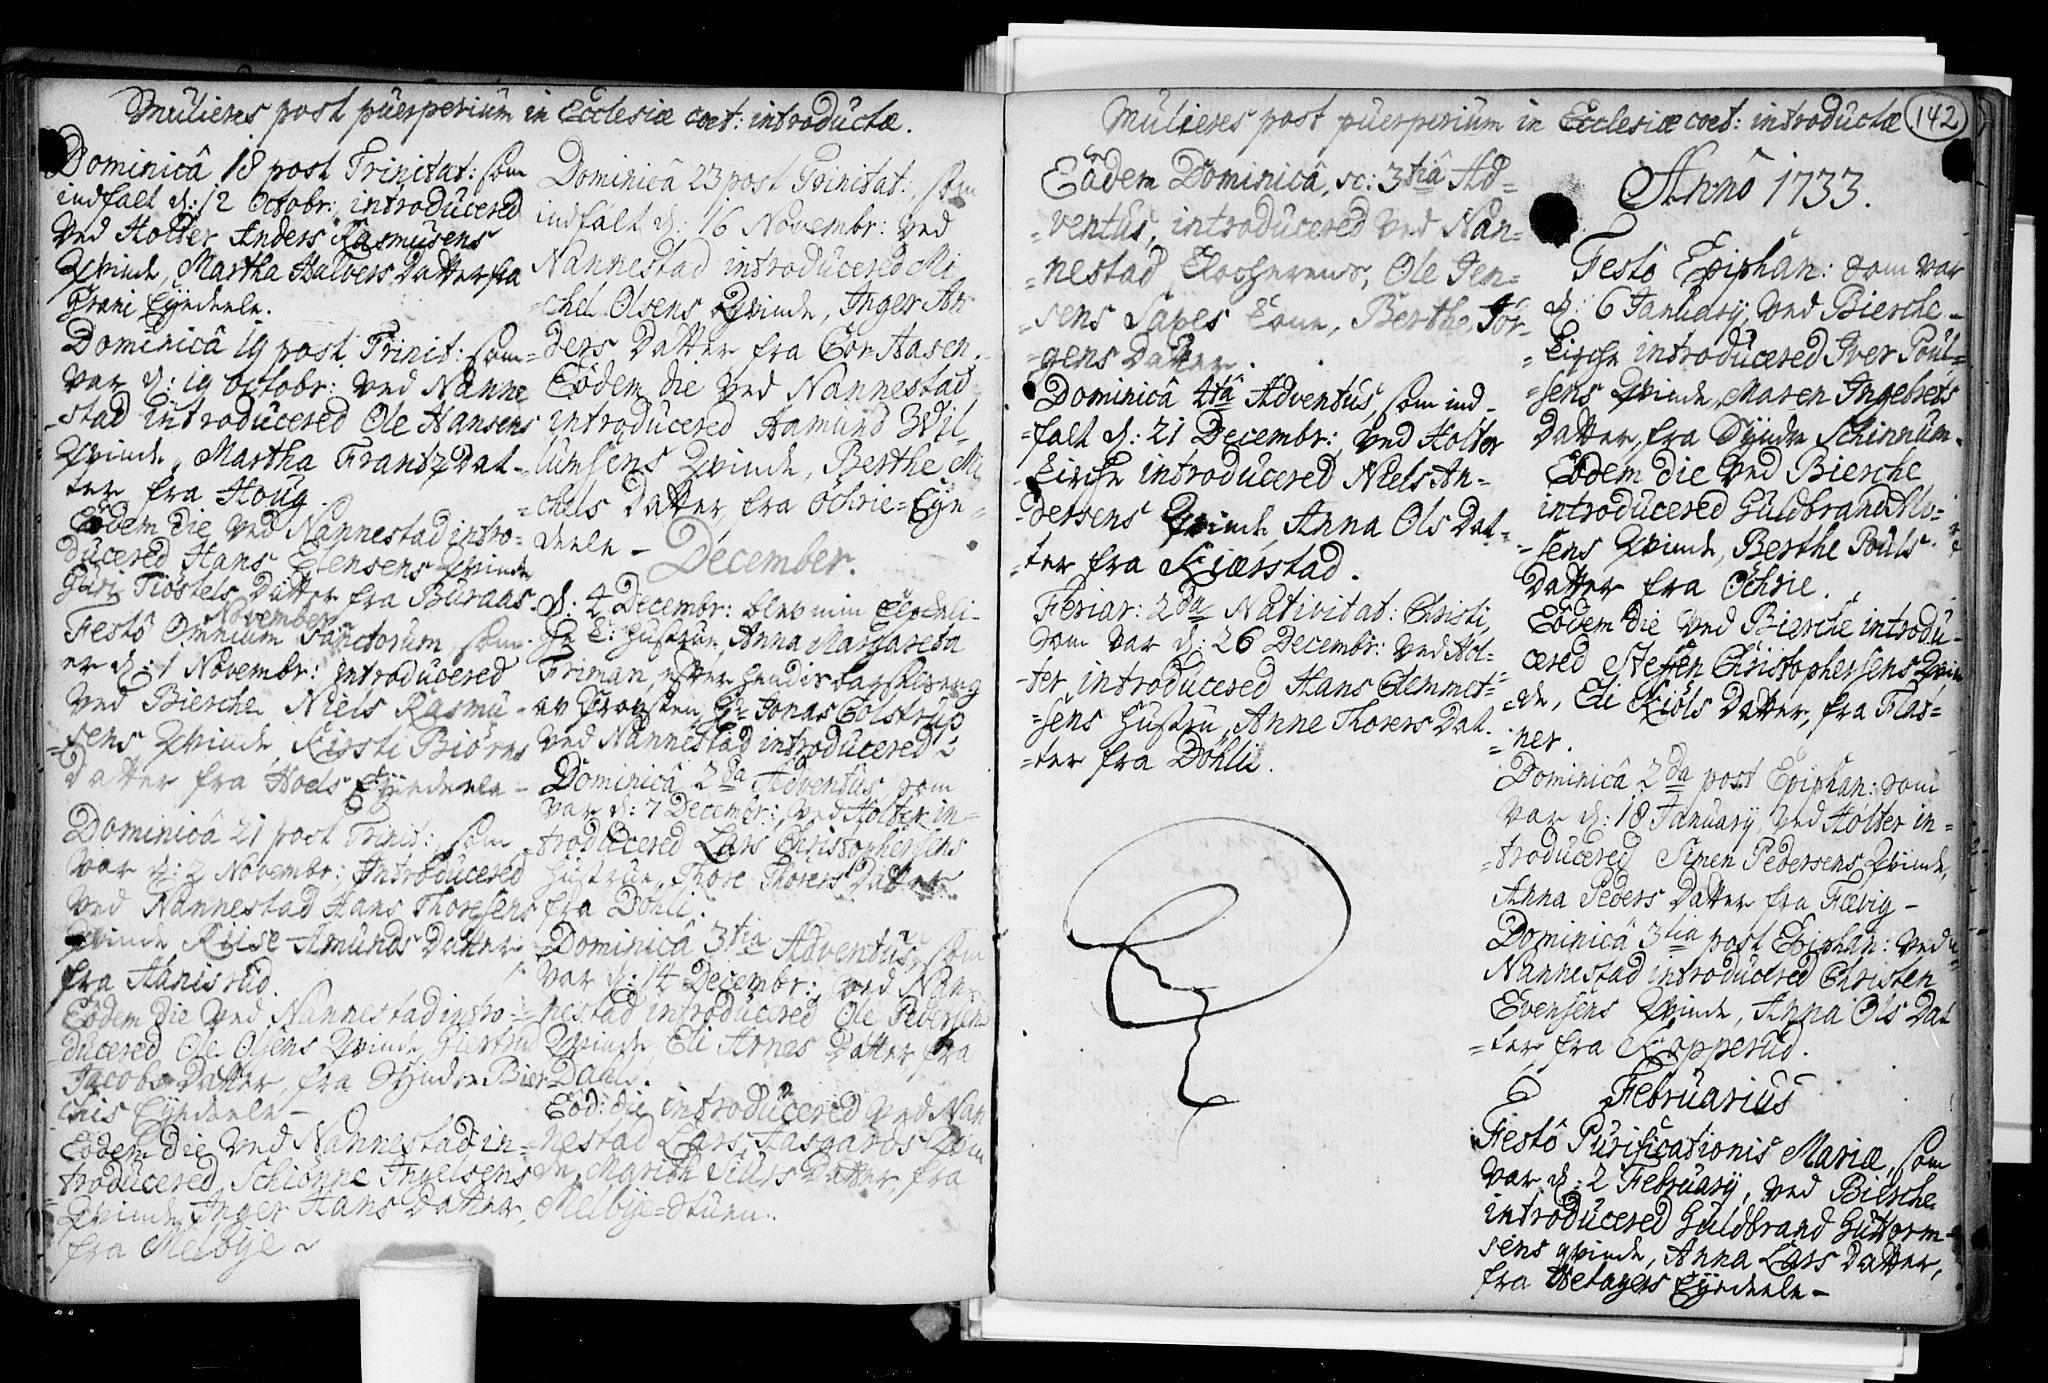 Mulieres post puerperium in Ecclesiæ coet: introductæ.
Dominicâ 18 post Trinitat: som
indfalt d: 12 Octobr: introducered
ved Holter Anders Rasmusens
Qvinde, Martha Halvers Datter fra
Eyedeele.
Dominicâ 19 post Trinit: som
var d: 19 octobr: ved Nanne
stad introducered Ole Hansens
Qvinde, Martha Frantz Dat-
ter fra Houg.
Eôdem die ved Nannestad intro-
ducered Hans Qvinde
Tiostels Datter fra Buraas
November
Festô Omnium Sanctorum, som
er d: 1 Novembr: introducered
ved Bierche Niels Rasmu-
=sens Qvinde, Kirsti Biørns
Datter fra Hoels Eyedeele-
Dominicâ 21 post Trinit: som
var d: 2 Novembr: Introducered
ved Nannestad Hans Thoresens
Qvinde Amunds Datter
fra Aanisrud.
Eôdem die ved Nannestad intro-
ducered Ole Olsens Qvinde,
Jacobs Datter, fra Syndre Bier-
chis Eyedeele-
Eodem die ved Nannestad in-
troducered, Schiønne Ingelsens
Qvinde, Inger Hans Datter,
fra Melbye ~
Dominicâ 23 post Trinitat:, som
indfalt d: 16 Novembr: ved
Nannestad introducered Mi
=chel Olsens Qvinde, Inger An
=ders Datter fra Cor Aasen.
Eôdem die ved Nannestad
introducered Hamund Wil-
lumsens Qvinde, Berthe Mi
=chels Datter, fra Ochrie=Eye=
deele -
December.
d: 4 Decembr: blev min
Hustrue, Anna Margareta
Friman, efter hendis barselseng
av Provsten Hr Jonas Colstrup
ved Nannestad introducered
Dominicâ 2da Adventus, som
var d: 7 Decembr:, ved Holter in=
=troducered Lars Christophersens
Hustrue, Thore Thorers Datter
fra Døhli.
Dominicâ 3tia Adventus, som
var d: 14 Decembr:, ved Nan
nestad introducered Ole Pedersens
Qvinde, Eli Arnes Datter fra
Dahl.
Eôd: die introducered ved Nan
nestad Lars Aasgaards
de, Marith Siurs Datter, fra
Melbye=Stuen.
Mulieres post puerperium in Ecclesiæ coet: introductæ
142
Eâdem Dominicâ, sc: 3tiâ Ad=
=ventus, introducered ved Nan=
=nestad Ole Jen=
=sens Berthe Jør-
=gens Datter.
Dominicâ 4tâ Adventus, som ind-
=falt d: 21 Decembr:, ved Holter
Kirche introducered Niels An-
=dersens Qvinde, Anna Ols Dat-
=ter fra Kiærstad.
Feriar: 2da Nativitat: Christi,
som var d: 26 Decembr: ved Hol=
-ter, introducered Hans Clemmet=
=sens Hustru, Anne Thorers Dat.
=ter fra Dôhli.
Annô 1733.
Festô Epiphan: som var
d: 6 January, ved Bierche-
=Kirche introducered Iver Poul=
=sens Qvinde, Maren Ingebrets
Datter, fra Syndre Schinnum.
Eôdem die ved Bierche
introducered Guldbrand
=sens Qvinde, Berthe Pouls
Datter fra Ochrie.
Eôdem die ved Bierche introdu-
cered Steffen Christophersens Qvin
=de, Eli Kiôls Datter, fra Flas=
=ner.
Dominicâ 2da post Epiphan: som
var d: 18 January, ved Holter in=
=troducered Simen Pedersens Qvinde,
Anna Peders Datter fra Fævig-
Dominicâ 3tia post Epiphan: ved
Nannestad introducered Christen
Evensens Qvinde, Anna Ols Dat
=ter fra Kopperud.
Februarius
Festô Purificationis Mariæ, som
var d: 2 February, ved Bierche
introducered Guldbrand Guttorm-
sens qvinde, Anna Lars Datter,
fra Eyedeele-